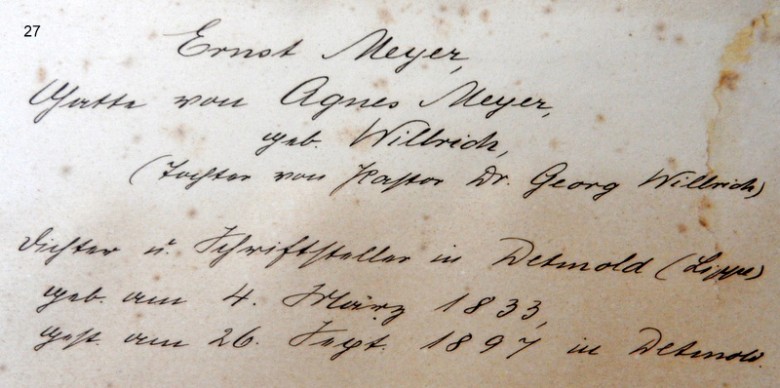 27
Ernst Meyer,
Gatte von Agnes Meyer,
geb. Willrich,
(Tochter von Pastor Dr. Georg Willrich)
Dichter u. Schriftsteller in Detmold (Lippe)
geb. am 4. März 1833,
gest. am 26. Sept. 1897 in Detmold